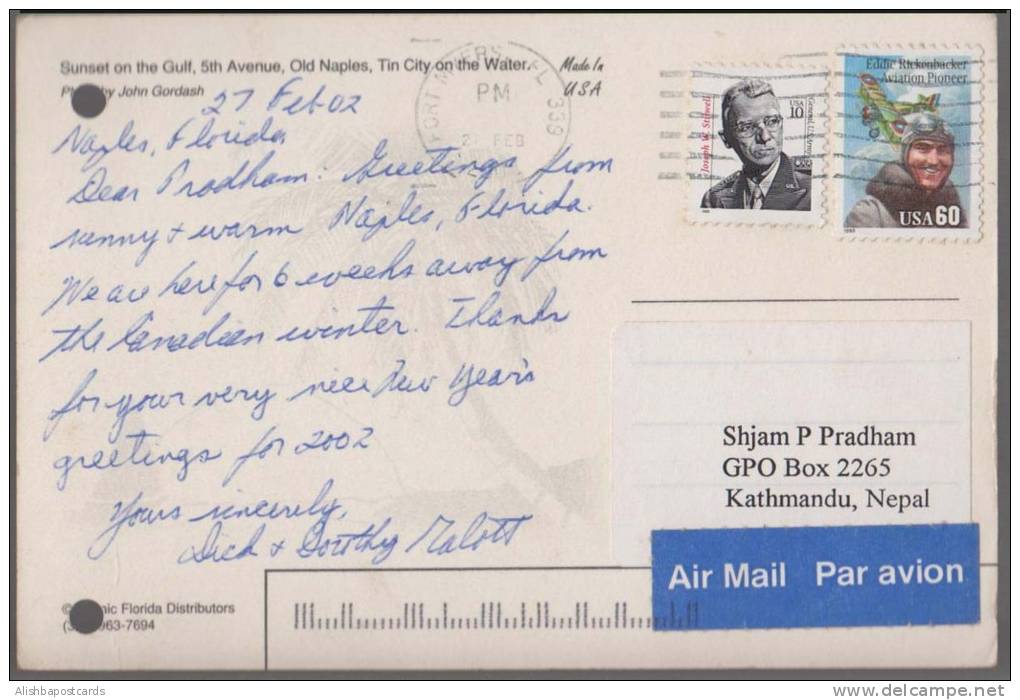 Sunset on the Gulf, 5th Avenue, Old Naples, Tin City on the Water.
by John Gordash
Made In
USA
27 Feb 02
Naples, Florida
Dear Pradham: Greetings from
sunny + warm Naples, Florida.
We are here for 6 weeks away from
the Canadian winter. Thanks
for your very nice New Year's
greetings for 2002
Yours sincerely,
Dick + Dorothy Malott
FORT MYERS, FL 339
PM
FEB
Joseph W. Stilwell
USA
10
General, U.S. Army
Eddie Rickenbacker
Aviation Pioneer
USA 60
Shjam P Pradham
GPO Box 2265
Kathmandu, Nepal
Air Mail Par avion
Florida Distributors
963-7694
Alishbapostcards